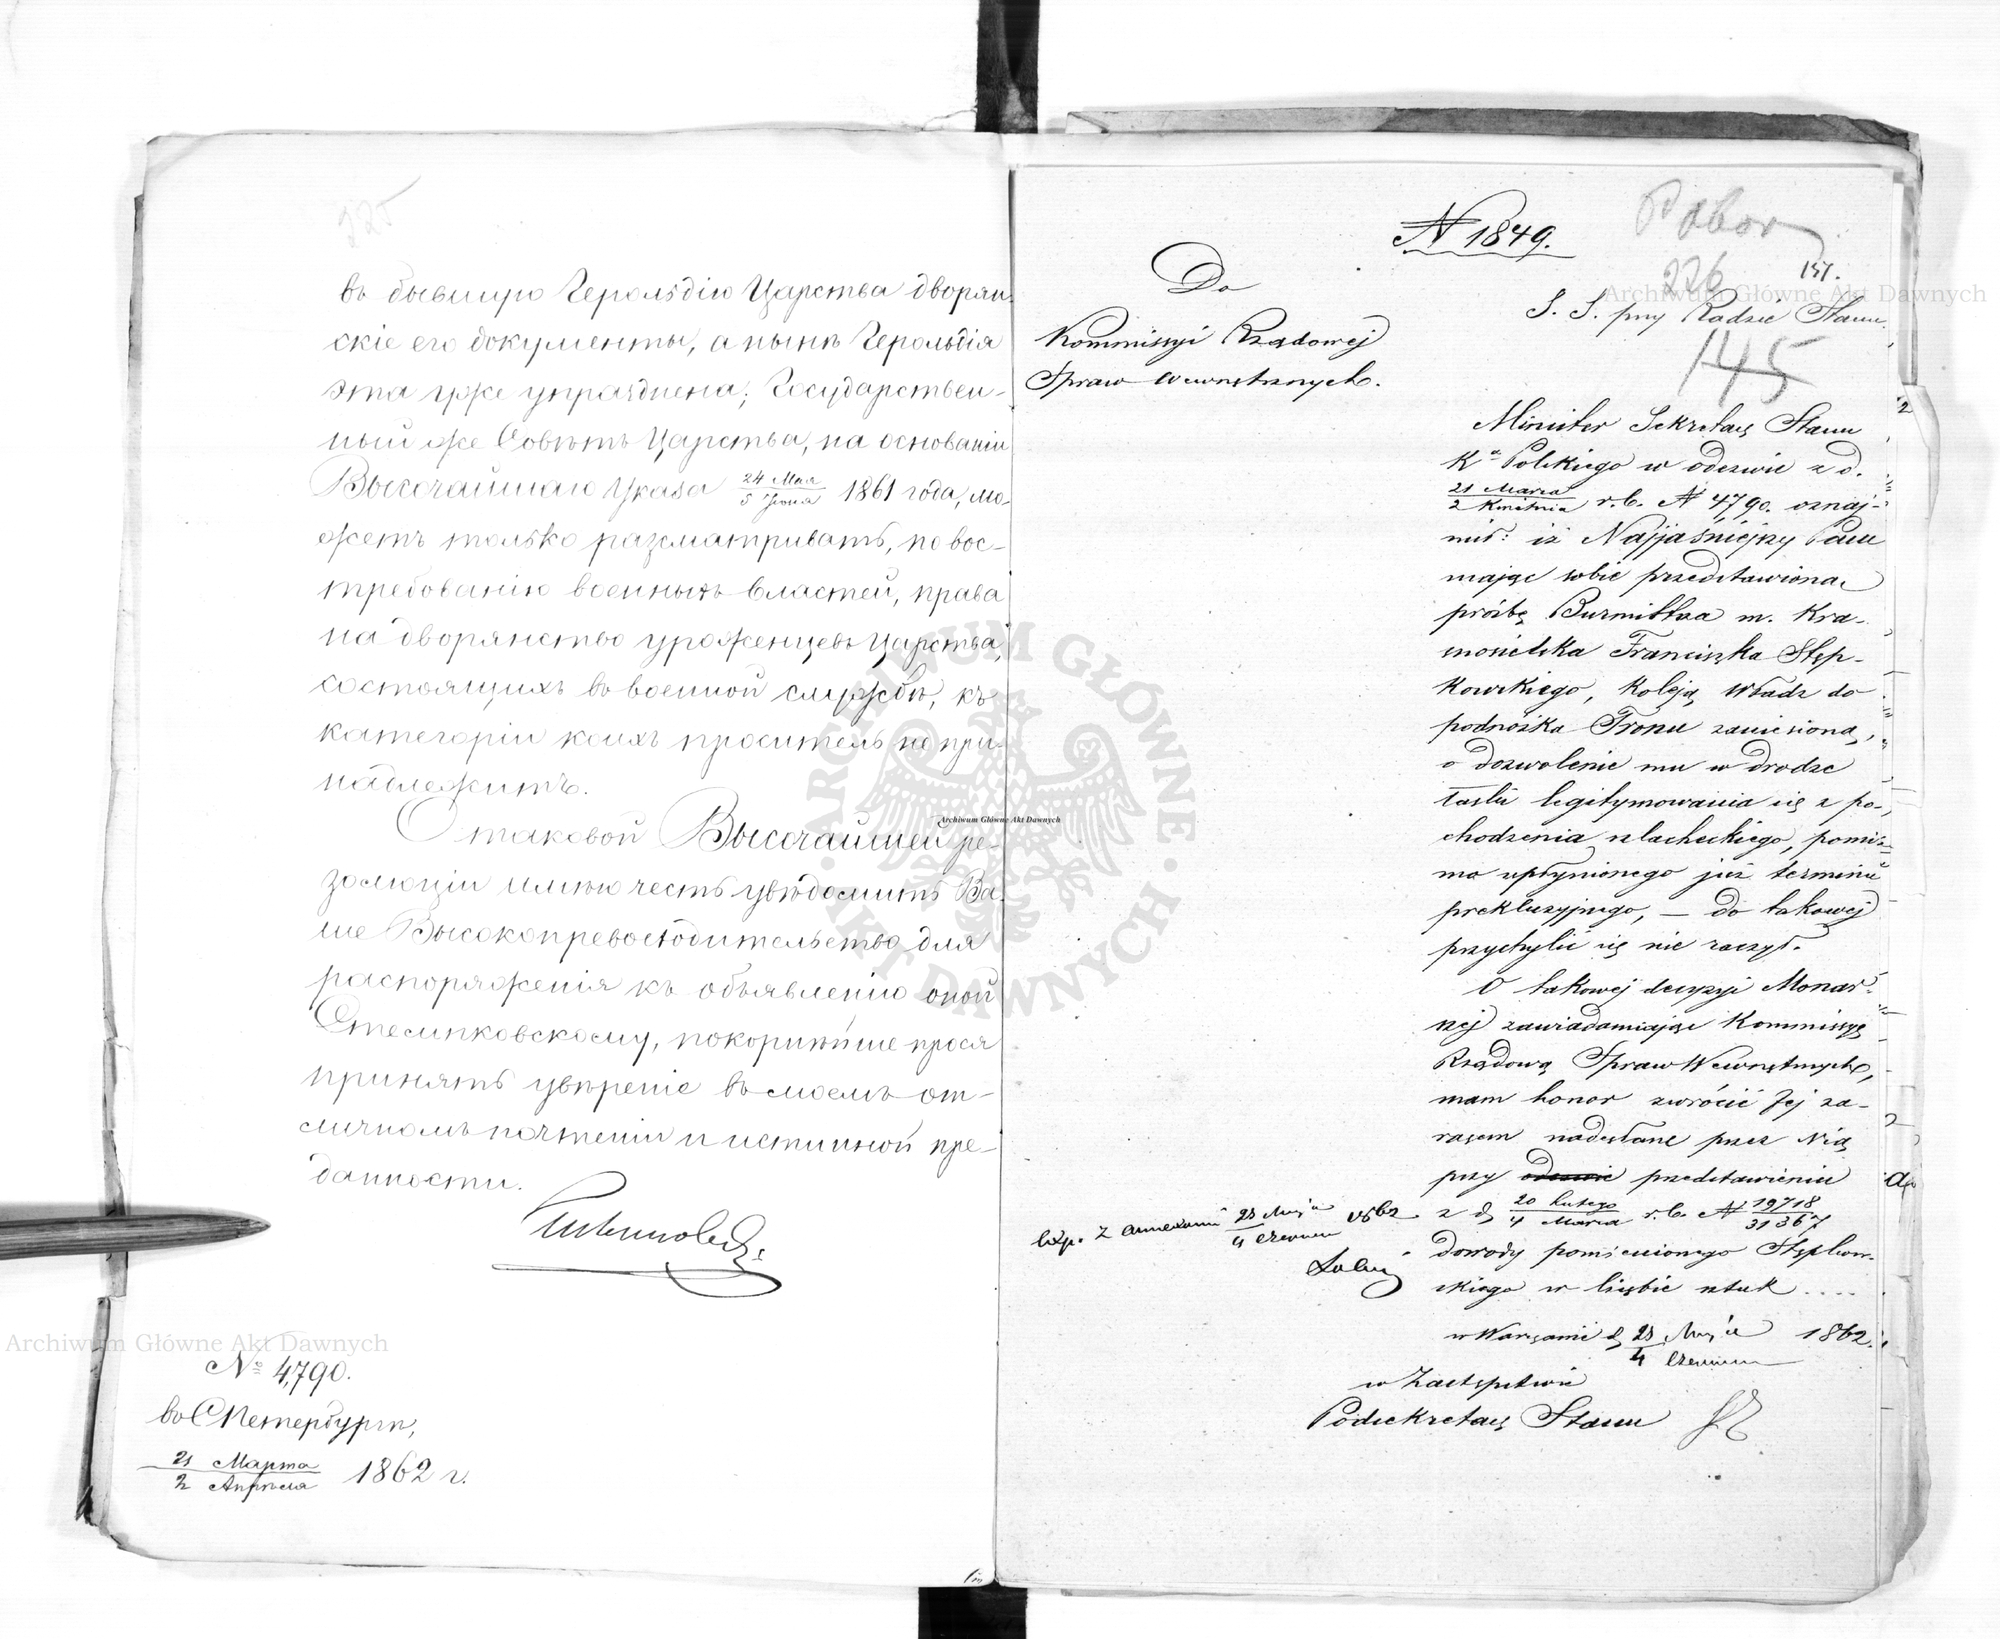 225
въ бывшую Герольдію Царства дворян-
скіе его документы, а нынѣ Герольдія
эта уже упразднена; Государствен-
ный же Совѣтъ Царства, на основаніи
Высочайшаго Указа 24 Мая / 5 Іюня 1861 года, мо-
жетъ только разсматривать, по вос-
требованію военныхъ властей, права
на дворянство уроженцевъ Царства,
состоящихъ въ военной службѣ, къ
категоріи коихъ проситель не при-
надлежитъ.
О таковой Высочайшей ре-
золюціи имѣю честь увѣдомить Ва-
ше Высокопревосходительство для
распоряженія къ объявленію оной
Стемпковскому, покорнѣйше прося
принять увѣреніе въ моемъ от-
личномъ почтеніи и истинной пре-
данности.
№ 4,790.
въ С Петербургѣ,
21 Марта / 2 Апрѣля 1862 г.
N 1849.
226
157.
Do
Kommissyi Rządowej
Spraw Wewnętrznych.
S. S. przy Radzie Stanu
145
Minister Sekretarz Stanu
Kª Polskiego w odezwie z d.
21 Marca / 2 Kwietnia r.b. N 4790. oznaj-
mił: iż Najjaśniejszy Pan
mając sobie przedstawioną
prośbę Burmistrza m. Kra-
snosielska Franciszka Stęp-
kowskiego, koleją Władz do
podnóżka Tronu zaniesioną,
o dozwolenie mu w drodze
łaski legitymowania się z po-
chodzenia szlacheckiego, pomi-
mo upłynionego już terminu
prekluzyjnego, — do takowej
przychylić się nie raczył.
O takowej decyzyi Monar-
szej zawiadamiając Kommissyę
Rządową Spraw Wewnętrznych,
mam honor zwrócić Jej za-
razem nadesłane przez Nią
przy odezwie przedstawieniu
z d. 20 Lutego / 4 Marca r.b. N 19718 / 31367
dowody pomienionego Stępkow-
skiego w liczbie sztuk ....
Exp. z annexami 23 Maja / 4 Czerwca 1862
w Warszawie d. 23 Maja / 4 Czerwca 1862.
w Zastępstwie
Podsekretarz Stanu
Archiwum Główne Akt Dawnych
Archiwum Główne Akt Dawnych
Archiwum Główne Akt Dawnych
ARCHIWUM GŁÓWNE AKT DAWNYCH